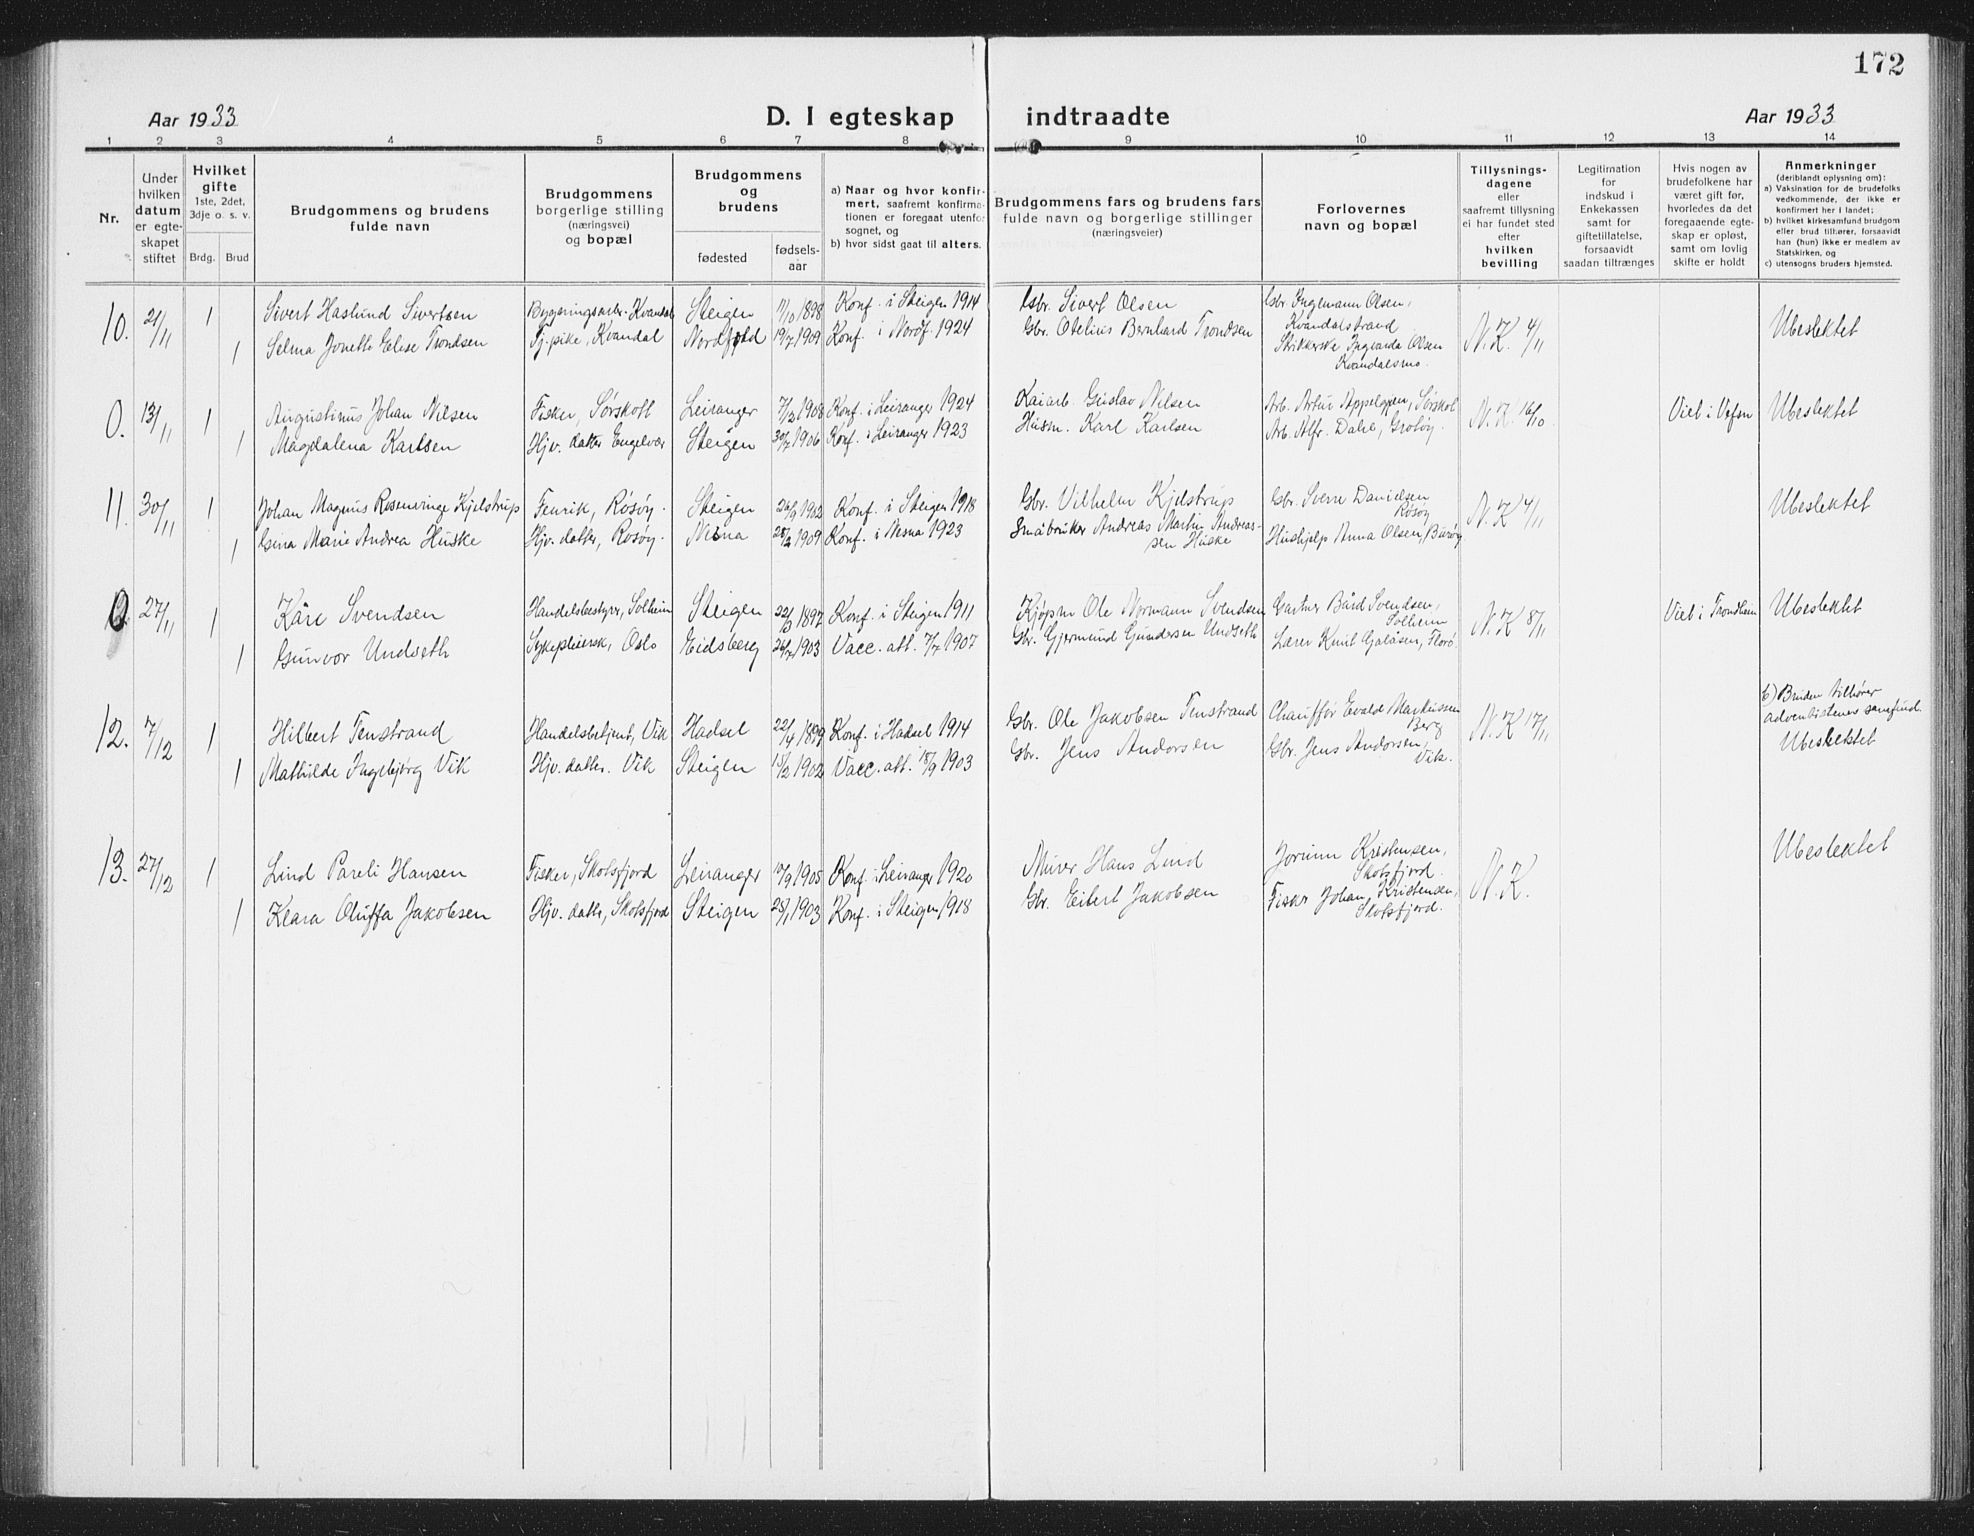 172
Aar 1933
D. I egteskap
indtraadte
Aar 1933
1 2 3 4 5 6 7 8 9 10 11 12 13 14
Nr.
Under
hvilken
datum
er egte-
skapet
stiftet
Hvilket
gifte
1ste, 2det,
3dje o. s. v.
Brdg. Brud
Brudgommens og brudens
fulde navn
Brudgommens
borgerlige stilling
(næringsvei)
og bopæl
Brudgommens
og
brudens
fødested
fødsels-
aar
a) Naar og hvor konfir-
mert, saafremt konfirma-
tionen er foregaat utenfor
sognet, og
b) hvor sidst gaat til alters.
Brudgommens fars og brudens fars
fulde navn og borgerlige stillinger
(næringsveier)
Forlovernes
navn og bopæl
Tillysnings-
dagene
eller
saafremt tillysning
ei har fundet sted
efter
hvilken
bevilling
Legitimation
for
indskud i
Enkekassen
samt for
giftetillatelse,
forsaavidt
saadan tiltrænges
Hvis nogen av
brudefolkene har
været gift før,
hvorledes da det
foregaaende egte-
skap er opløst,
samt om lovlig
skifte er holdt
Anmerkninger
(deriblandt oplysning om):
a) Vaksination for de brudefolks
vedkommende, der ikke er
konfirmert her i landet;
b) hvilket kirkesamfund brudgom
eller brud tilhører, forsaavidt
han (hun) ikke er medlem av
Statskirken, og
c) utensogns bruders hjemsted.
10. 21/11 1 Sivert Haslund Sivertsen Bygningsarb. Kvandal Steigen 11/10 1898 Konf. i Steigen 1914 Gbr. Sivert Olsen Gbr. Ingemann Olsen, Kvandalstrand N.K. 4/11 Ubeslektet
1 Selma Jonette Elise Trondsen Tj.pike, Kvandal Nordfold 19/7 1909 Konf. i Nordf. 1924 Gbr. Otelius Bernhard Trondsen Strikkerske Ingvarda Olsen Kvandalsmo.
0. 13/11 1 Augustinus Johan Nilsen Fisker, Sørskott Leiranger 7/2 1908 Konf. i Leiranger 1924 Kaiarb. Gustav Nilsen Arb. Artur Appelgren, Sørskot N.K. 16/10 Viet i Vefsn Ubeslektet
1 Magdalena Karlsen Hjv. datter Engelvær Steigen 30/7 1906 Konf. i Leiranger 1923 Husm. Karl Karlsen Arb. Alfr. Dahl, Grøtøy.
11. 30/11 1 Johan Magnus Rosenvinge Kjelstrup Fenrik, Røsøy. Steigen 26/9 1902 Konf. i Steigen 1918 Gbr. Vilhelm Kjelstrup Gbr. Sverre Danielsen Røsøy N.K. 4/11 Ubeslektet
1 Gina Marie Andrea Huske Hjv. datter, Røsøy. Nesna 28/2 1909 Konf. i Nesna 1923 Småbruker Andreas Martin Andreas-
sen Huske Hushjelp Anna Olsen, Burøy
0 27/11 1 Kåre Svendsen Handelsbestyrer, Solheim Steigen 22/3 1897 Konf. i Steigen 1911 Kjøpm Ole Normann Svendsen Gartner Bård Svendsen, Solheim N.K 8/11 Viet i Trondheim Ubeslektet
1 Gunvor Undseth Sykepleiersk, Oslo Eidsberg 26/7 1903 Vacc. att. 7/7 1907 Gbr. Gjermund Gundersen Undseth Lærer Knut Galåsen, Florø.
12. 7/12 1 Hilbert Tenstrand Handelsbetjent, Vik Hadsel 22/4 1899 Konf. i Hadsel 1914 Gbr. Ole Jakobsen Tenstrand Chauffør Evald Markussen Berg N.K 17/11 b) Bruden tilhører
adventistenes samfund.
Ubeslektet
1 Mathilde Ingebjørg Vik Hjv. datter. Vik Steigen 15/2 1902 Vacc. att. 18/9 1903 Gbr. Jens Andorsen Gbr. Jens Andorsen, Vik.
13. 27/12 1 Lind Pareli Hansen Fisker, Skotsfjord Leiranger 10/9 1905 Konf. i Leiranger 1920 Murer Hans Lind Jorunn Kristensen, Skotsfjord. N.K. Ubeslektet
1 Klara Oluffa Jakobsen Hjv. datter, Skotsfjord Steigen 28/1 1903 Konf. i Steigen 1918 Gbr. Eilert Jakobsen Fisker Johan Kristensen, Skotsfjord.